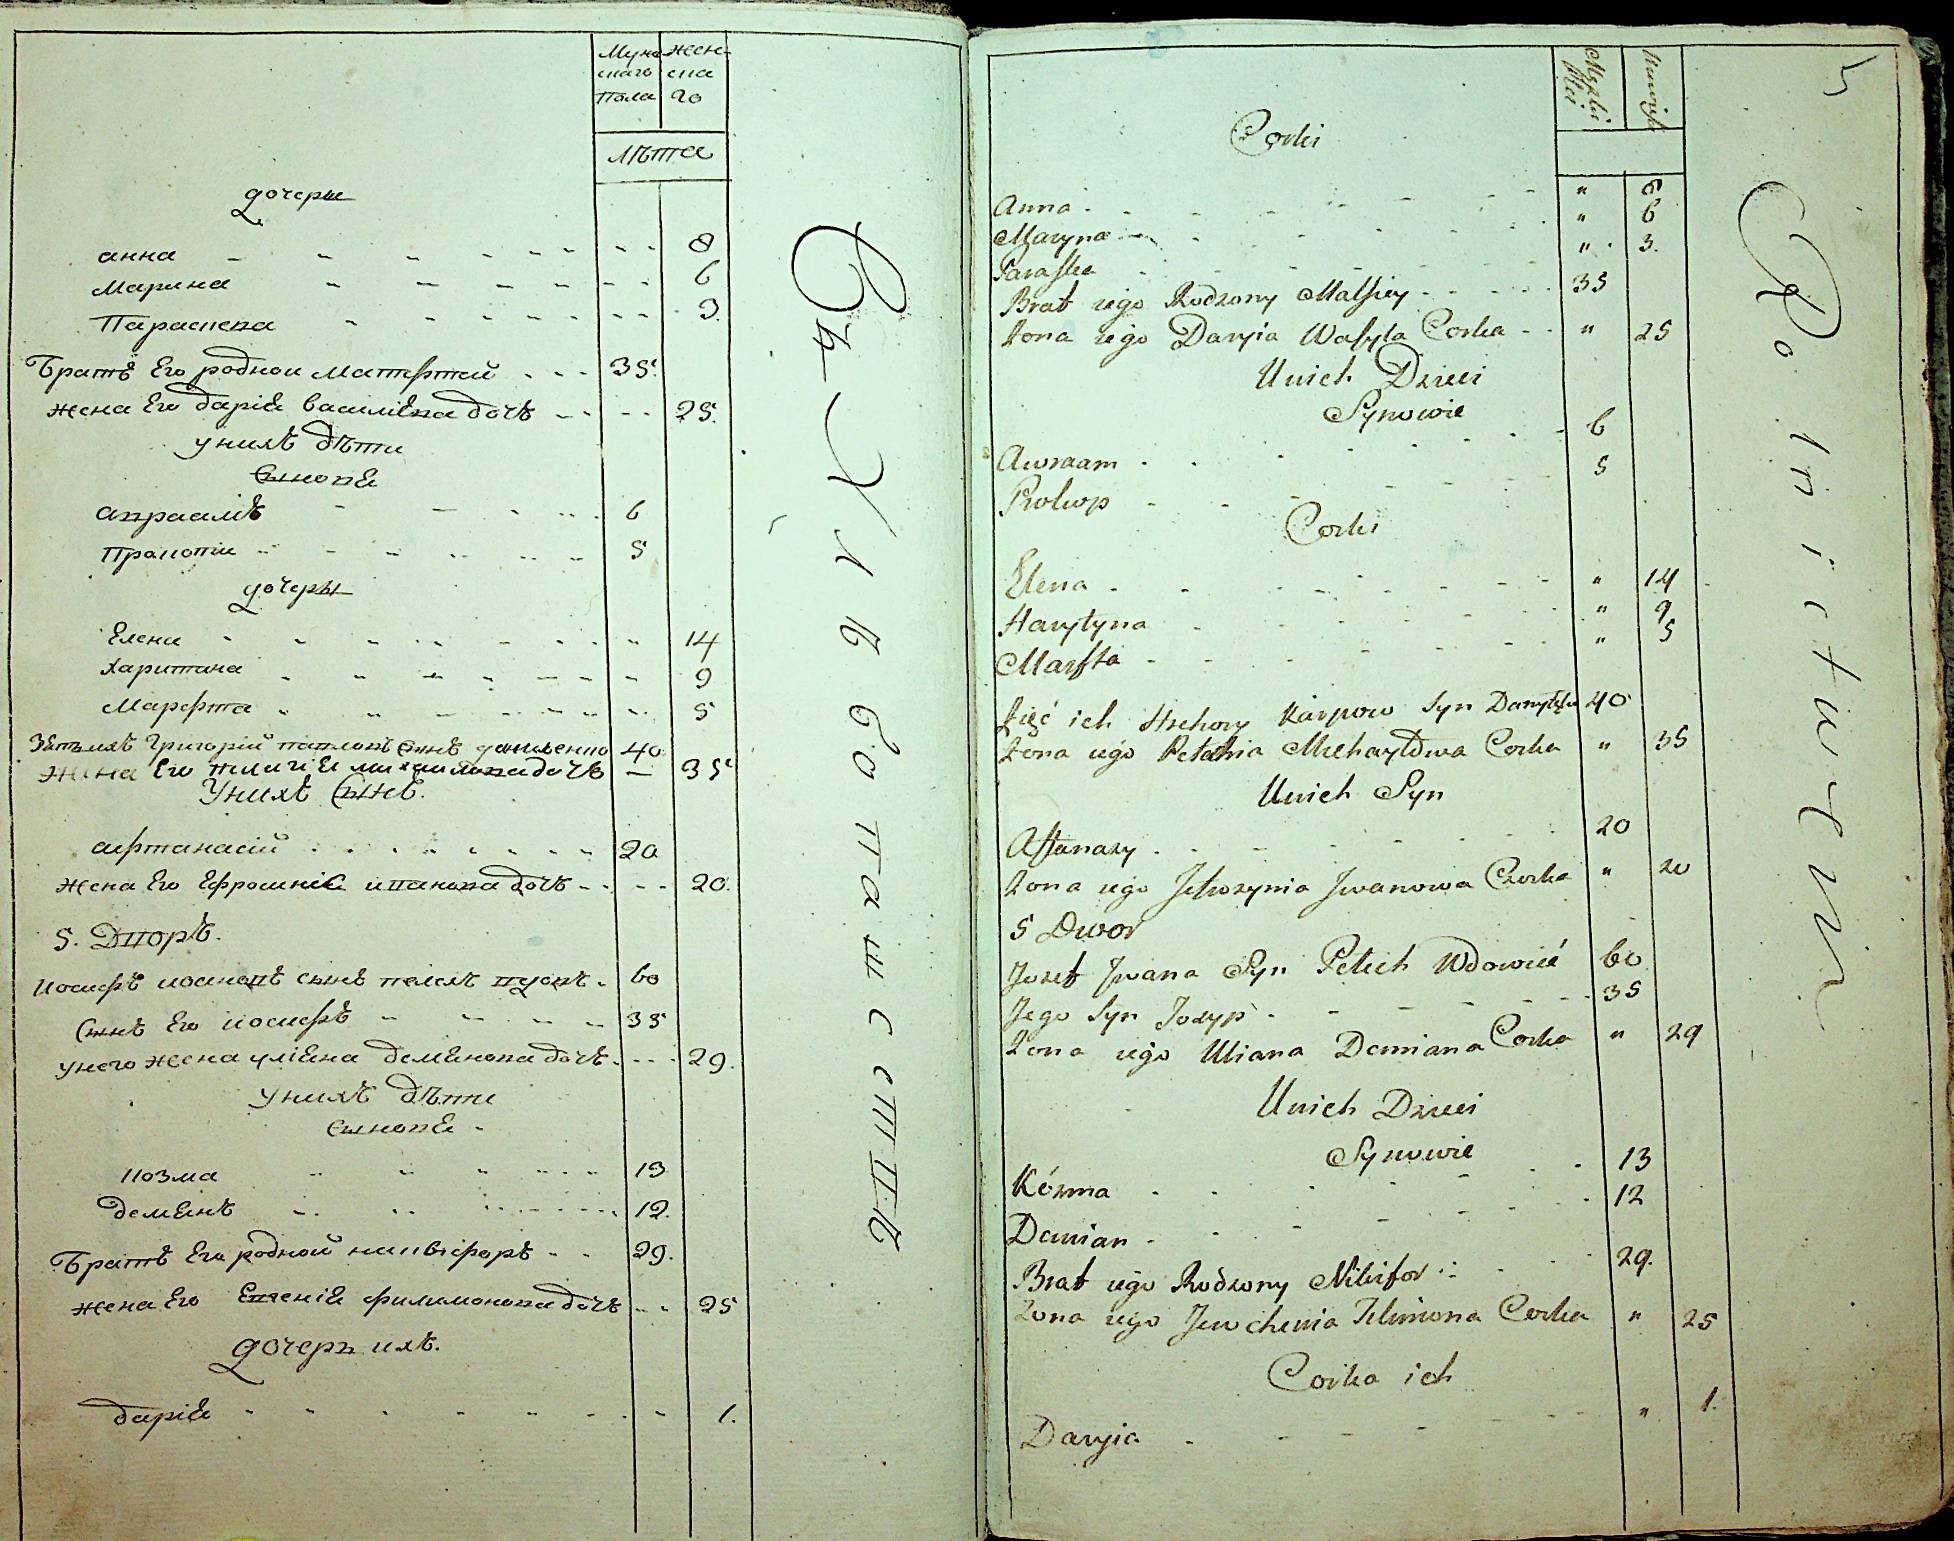 Мужескаго Пола
Женска го
Лѣта
дочеры
анна 8
Марина 6
Параскева 3.
Братъ Его родной Матфтей 35.
жена Его дарія василіева дочь 25.
у нихъ дѣти
Сынове
авраамъ 6
Прокопи 5
дочеры
Елена 14
Харитина 9
Марфта 5
Зять ихъ Григорій сынъ даниленко 40
жена Его михаилова дочь — 35
У нихъ Сынъ.
афтанасій 20
жена Его Ефросинія иванова дочь 20.
5. Дворъ.
Иосифъ сынъ 60
Сынъ Его иосифъ 35
у него жена уліяна демянова дочь 29.
у нихъ дѣти
сынове
козма 13
демянъ 12.
Братъ Его родной никифоръ 29.
жена Его Евгенія филимонова дочь 25
дочеръ ихъ.
дарія 1.
Съ Х
5
Męzkiey Płci
Corki
Anna " 8
Maryna " 6
Paraska " 3.
Brat iego Rodzony Matfiey 35
Żona iego Daryia Wasyla Corka " 25
U nich Dzieci
Synowie
Awraam 6
Prokop 5
Corki
Elena " 14
Harytyna " 9
Marfta " 5
Zięć ich Hrehory Karpow Syn 40
Żona iego Pelahia Michayłowa Corka " 35
U nich Syn
Aftanazy 20
Żona iego Jefrozynia Jwanowa Corka " 20
5 Dwor
Jozef Jwana Syn Petich Wdowiec 60
Jego Syn Jozyp 35
Żona iego Uliana Demiana Corka " 29
U nich Dzieci
Synowie
Kózma 13
Demian 12
Brat iego Rodzony Nikifor 29.
Żona iego Jewchenia Filimona Corka " 25
Corka ich
Daryia " 1.
Po